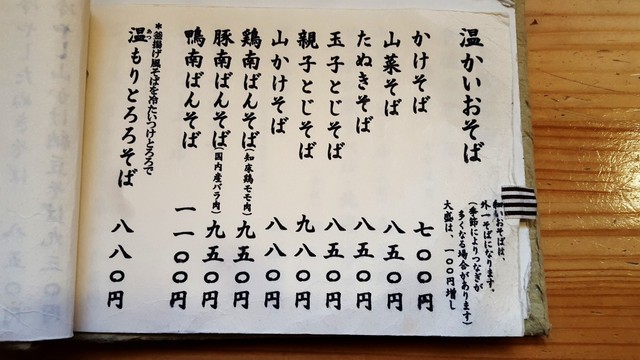 温かいおそば
かいおそばは、
外一そばになります。
(季節によりつなぎが
多くなる場合があります)
大盛は、一〇〇円増し
かけそば 七〇〇円
山菜そば 八五〇円
たぬきそば 八五〇円
玉子とじそば 八五〇円
親子とじそば 九八〇円
山かけそば 八八〇円
鶏南ばんそば(知床鶏モモ肉) 九五〇円
豚南ばんそば(国内産バラ肉) 九五〇円
鴨南ばんそば 一一〇〇円
*釜揚げ風そばを冷たいつけとろろで
温もりとろろそば 八八〇円
あつ